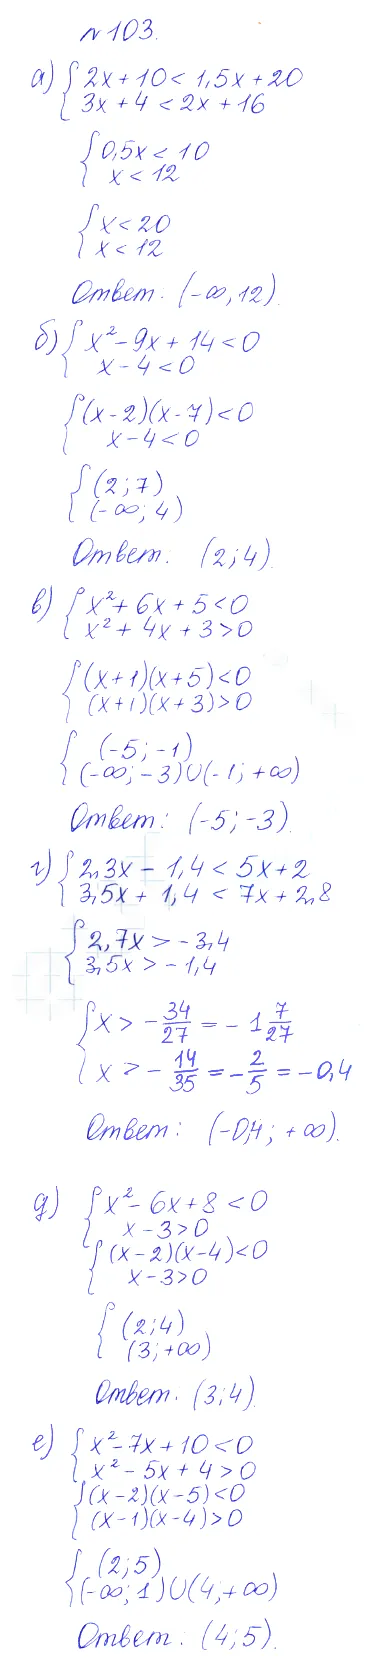 №103.
а) { 2x + 10 < 1,5x + 20
3x + 4 < 2x + 16
{ 0,5x < 10
x < 12
{ x < 20
x < 12
Ответ: (-∞, 12).
б) { x² - 9x + 14 < 0
x - 4 < 0
{ (x - 2)(x - 7) < 0
x - 4 < 0
{ (2; 7)
(-∞; 4)
Ответ: (2; 4).
в) { x² + 6x + 5 < 0
x² + 4x + 3 > 0
{ (x + 1)(x + 5) < 0
(x + 1)(x + 3) > 0
{ (-5; -1)
(-∞; -3) ∪ (-1; +∞)
Ответ: (-5; -3).
г) { 2,3x - 1,4 < 5x + 2
3,5x + 1,4 < 7x + 2,8
{ 2,7x > -3,4
3,5x > -1,4
{ x > -34/27 = -1 7/27
x > -14/35 = -2/5 = -0,4
Ответ: (-0,4; +∞).
д) { x² - 6x + 8 < 0
x - 3 > 0
{ (x - 2)(x - 4) < 0
x - 3 > 0
{ (2; 4)
(3; +∞)
Ответ: (3; 4).
е) { x² - 7x + 10 < 0
x² - 5x + 4 > 0
{ (x - 2)(x - 5) < 0
(x - 1)(x - 4) > 0
{ (2; 5)
(-∞; 1) ∪ (4; +∞)
Ответ: (4; 5).